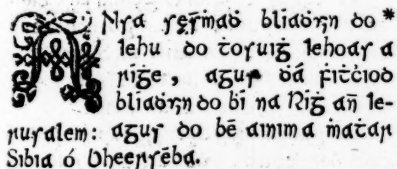 ANsa seċtṁaḋ bliaḋuin do *
Iehu do ṫosuiġ Iehoas a
ríġe, agus ḋá ḟitċiod
bliaḋuin do ḃí na Ríġ añ Ie-
rusalem: agus do bē ainim a ṁaṫar
Sibia ó Bheersēba.